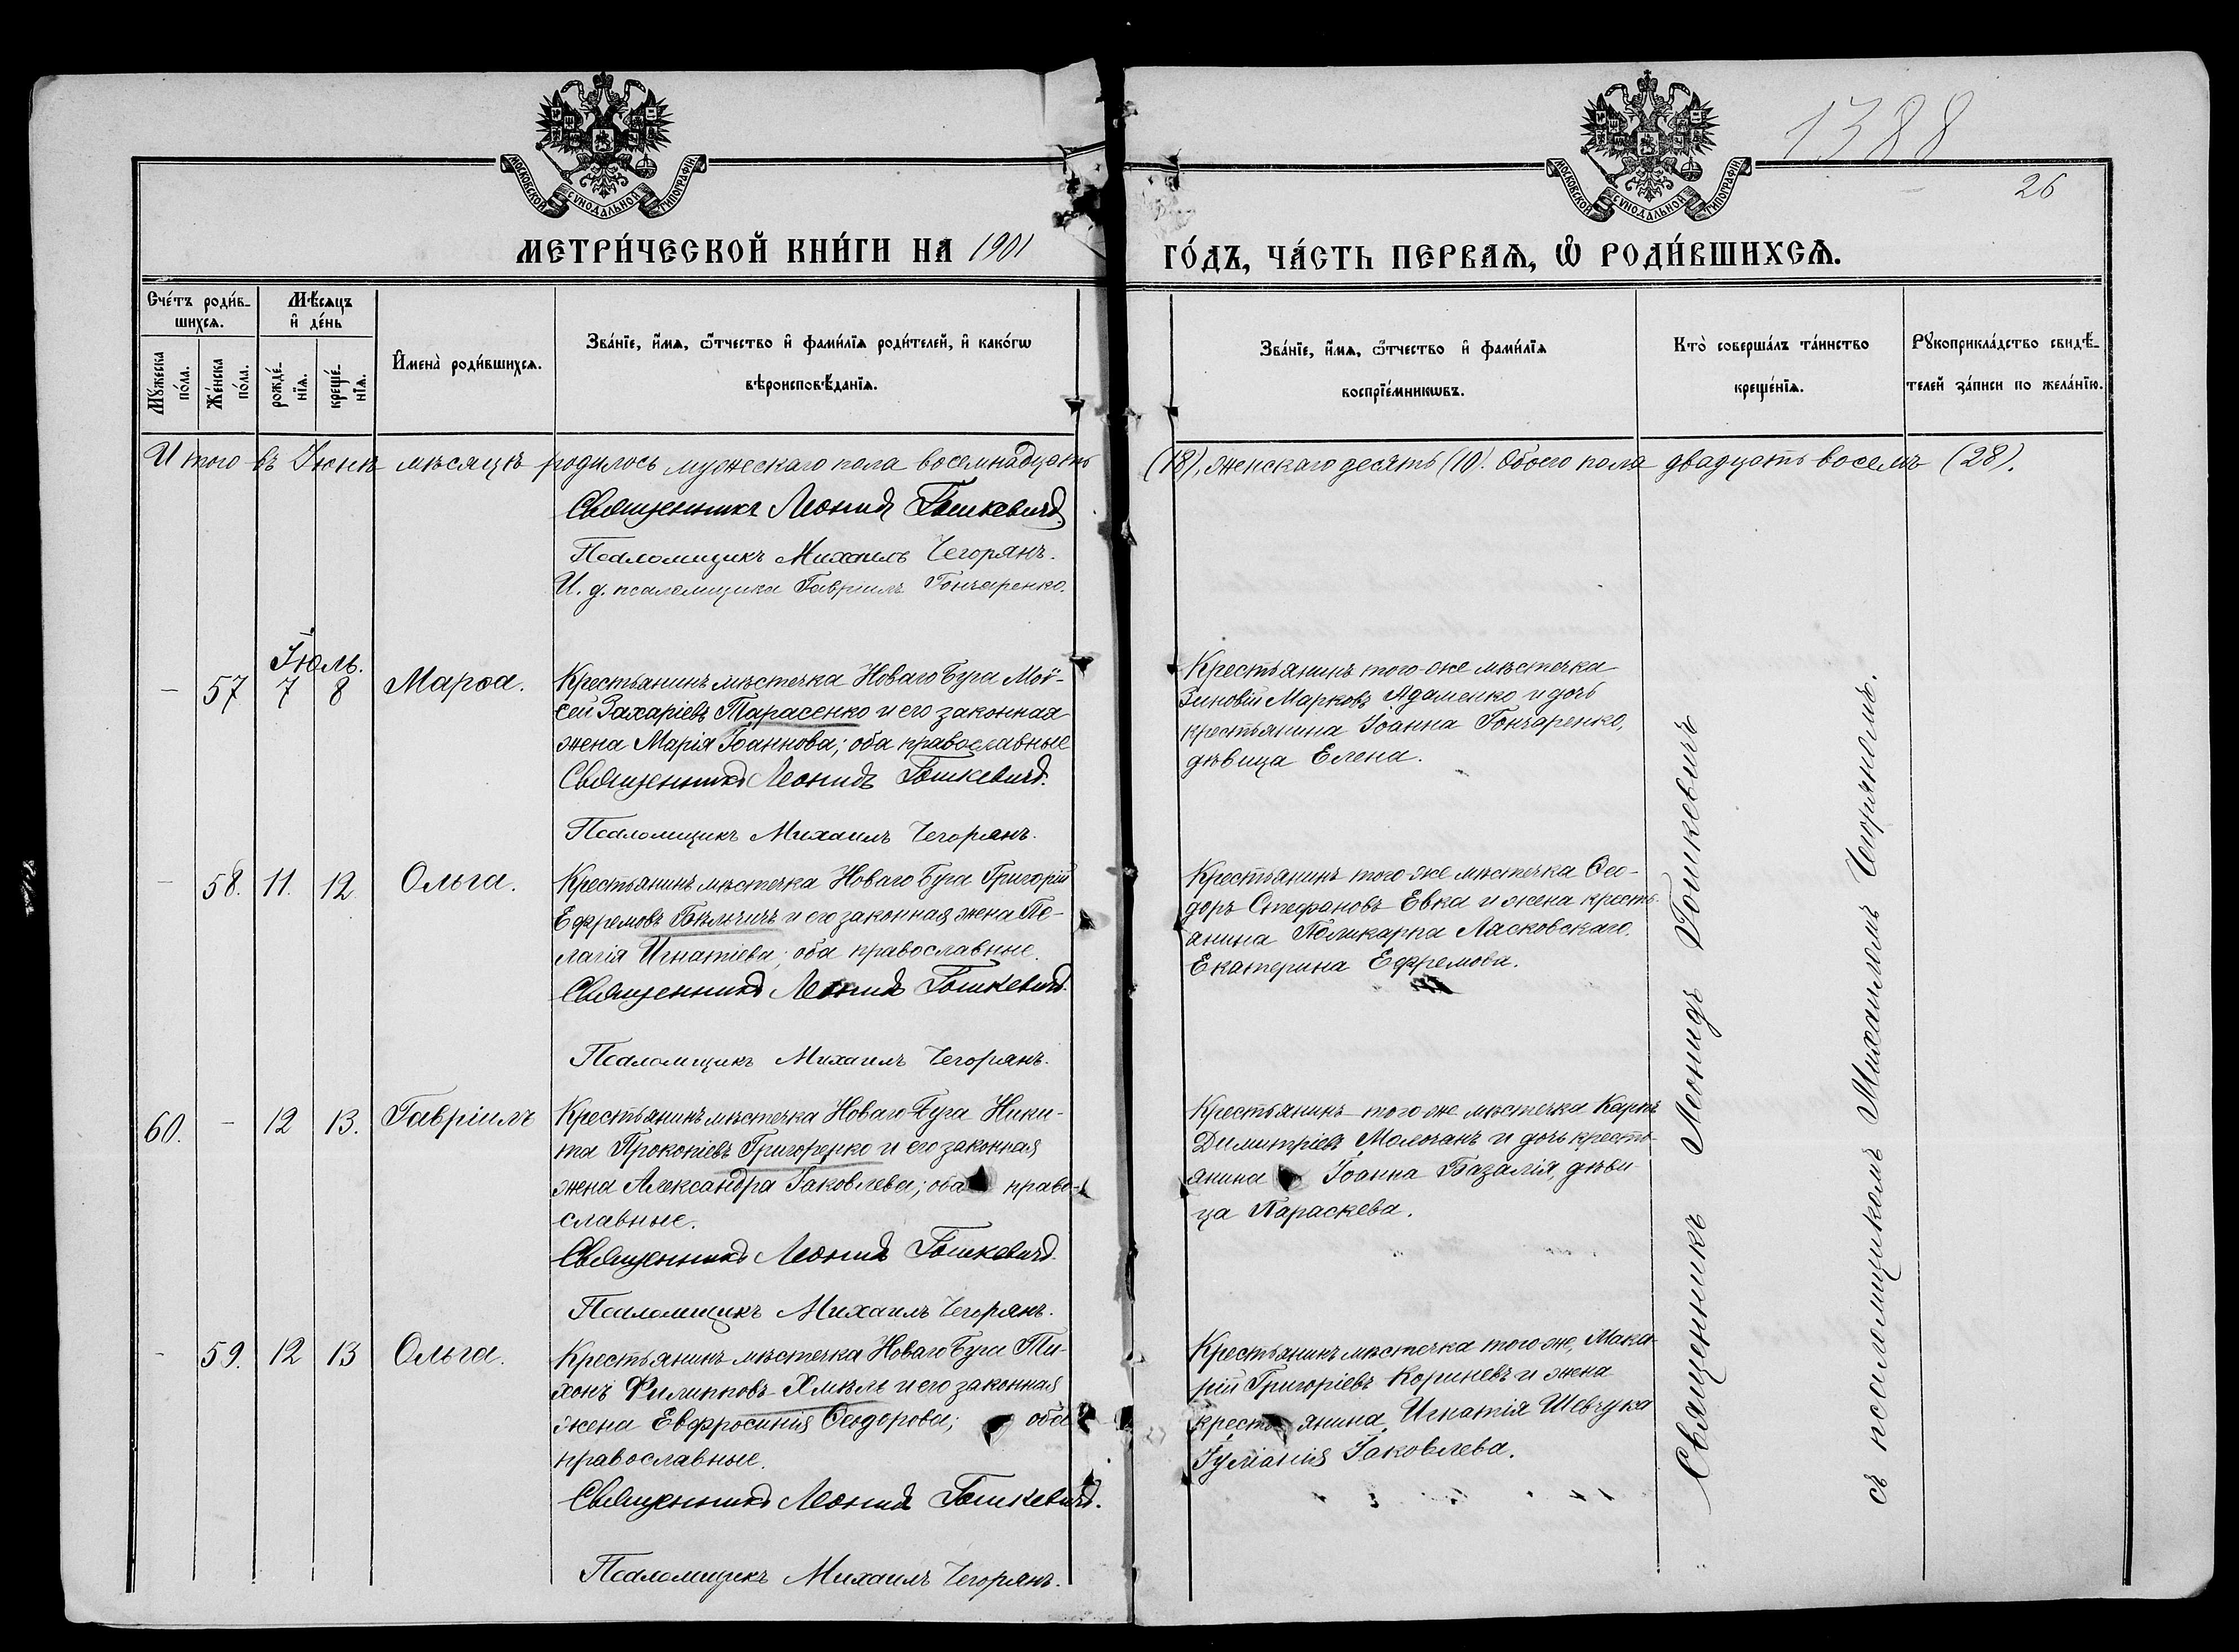 МОСКОВСКОЙ СѴНОДАЛЬНОЙ ТИПОГРАФІИ
МОСКОВСКОЙ СѴНОДАЛЬНОЙ ТИПОГРАФІИ
1388
26
МЕТРИ́ЧЕСКОЙ КНИ́ГИ НА 1901
ГО́ДЪ, ЧА́СТЬ ПЕРВАѦ, Ѡ҆ РОДИ́ВШИХСѦ.
Сче́тъ роди́в-
шихсѧ.
Мꙋ́жеска
по́ла.
Же́нска
по́ла.
Мѣ́сѧцъ
и҆ де́нь
рожде́-
нїѧ.
креще́-
нїѧ.
И҆мена̀ роди́вшихсѧ.
Зва́нїе, и҆́мѧ, ѻ҆́тчество и҆ фами́лїѧ роди́телей, и҆ како́гѡ
вѣроисповѣ́данїѧ.
Зва́нїе, и҆́мѧ, ѻ҆́тчество и҆ фами́лїѧ
воспрїе́мникѡвъ.
Кто̀ соверша́лъ та́инство
креще́нїѧ.
Рꙋкоприкла́дство свидѣ́-
телей за́писи по жела́нїю.
Итого въ Іюнѣ мѣсяцѣ родилось мужескаго пола восемнадцать
(18), женскаго десять (10). Обоего пола двадцать восемъ (28).
Священникъ Леонидъ Гошкевичъ.
Псаломщикъ Михаилъ Чегорянъ.
И. д. псаломщика Гавріилъ Гончаренко.
Іюль.
– 57 7 8 Марѳа.
Крестьянинъ мѣстечка Новаго Буга Мои-
сей Захаріевъ Тарасенко и его законная
жена Марія Іоаннова; оба православные
Священникъ Леонидъ Гошкевичъ.
Псаломщикъ Михаилъ Чегорянъ.
Крестьянинъ того-же мѣстечка
Зиновій Марковъ Адаменко и дочь
крестьянина Іоанна Гончаренко,
дѣвица Елена.
– 58. 11. 12. Ольга.
Крестьянинъ мѣстечка Новаго Буга Григорій
Ефремовъ Бѣльчичъ и его законная жена Пе-
лагія Игнатіева; оба православные.
Священникъ Леонидъ Гошкевичъ.
Псаломщикъ Михаилъ Чегорянъ.
Крестьянинъ того же мѣстечка Ѳео-
доръ Стефановъ Евка и жена кресть-
янина Поликарпа Ласковскаго,
Екатерина Ефремова.
60. – 12 13. Гавріилъ
Крестьянинъ мѣстечка Новаго Буга Ники-
та Прокопіевъ Григоренко и его законная
жена Александра Іаковлева; оба право-
славные.
Священникъ Леонидъ Гошкевичъ.
Псаломщикъ Михаилъ Чегорянъ.
Крестьянинъ того же мѣстечка Карпъ
Димитріевъ Молочанъ и дочь кресть-
янина Іоанна Базалія, дѣви-
ца Параскева.
– 59. 12 13 Ольга.
Крестьянинъ мѣстечка Новаго Буга Ти-
хонъ Филипповъ Хмѣль и его законная
жена Евфросинія Ѳеодорова; оба
православные.
Священникъ Леонидъ Гошкевичъ.
Псаломщикъ Михаилъ Чегорянъ.
Крестьянинъ мѣстечка того же, Мака-
рій Григоріевъ Кориневъ и жена
крестьянина Игнатія Шевчука
Іуліанія Іаковлева.
Священникъ Леонидъ Гошкевичъ
съ псаломщикомъ Михаиломъ Чегоряномъ.